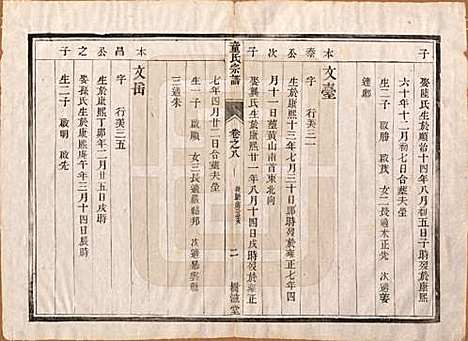 子 娶陸氏生於順治十四年八月初五日子時歿於康熙
六十年十二月初七日合葬夫塋
生二子 啟勝 啟茂 女二長適木正先 次適婁
連郷
本 文臺
泰 字 行美三一
公 生於康熙十三年七月三十日卯時歿於雍正七年四
月十一日葬黃山南首東北向
子 娶龔氏生於康熙廿一年八月十四日戌時歿於雍正
童氏宗譜 卷之八 二 樹滋堂
七年四月廿二日合葬夫塋
生一子 啟順 女三長適嚴 邦 次適
三適朱
本 文岳
昌 字 行美三五
公 生於康熙丁卯年二月廿五日戌時
之 娶孫氏生於康熙庚午年三月十四日辰時
子 生二子 啟明 啟先